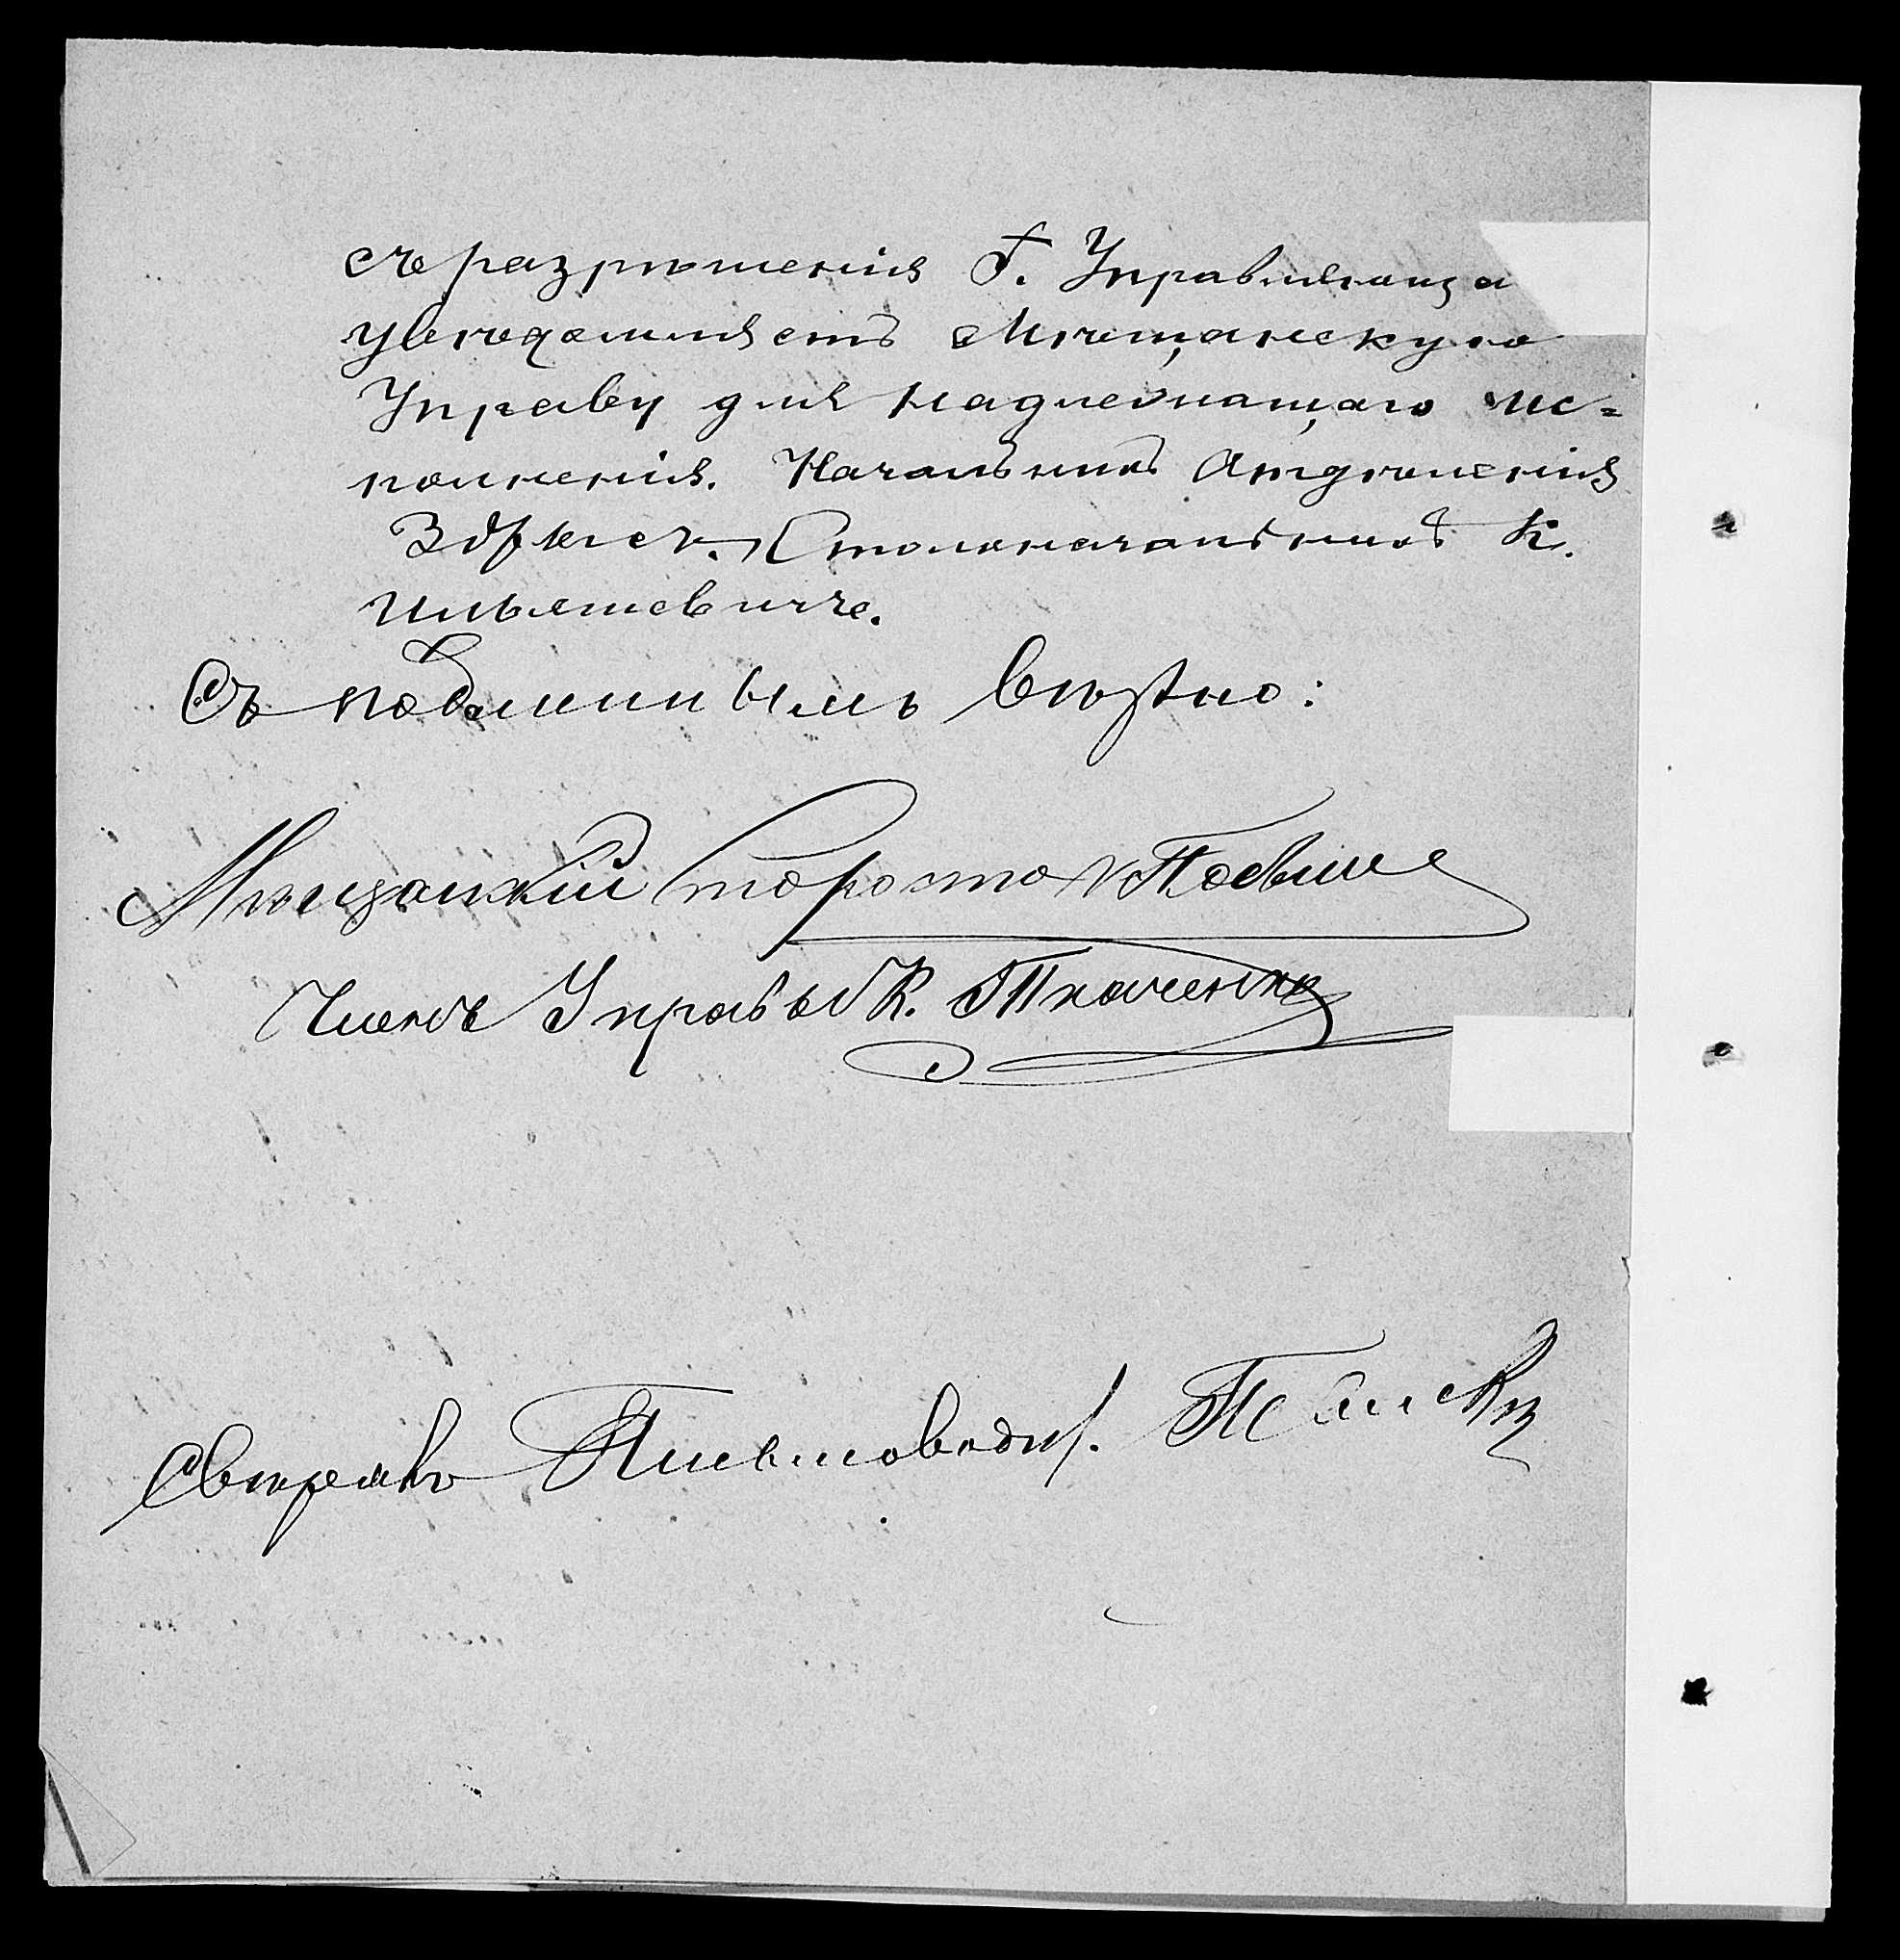 съ разрѣшенія Г. Управляюща
увѣдомляетъ Мѣщанскую
Управу для надлежащаго ис=
полненія. Начальникъ Отдѣленія
Столоначальникъ К.
Ильяшевичъ.
Съ подлиннымъ вѣрно:
Мѣщанскій Староста
Членъ Управы К. Ткаченко
Свѣрялъ Письмоводит.